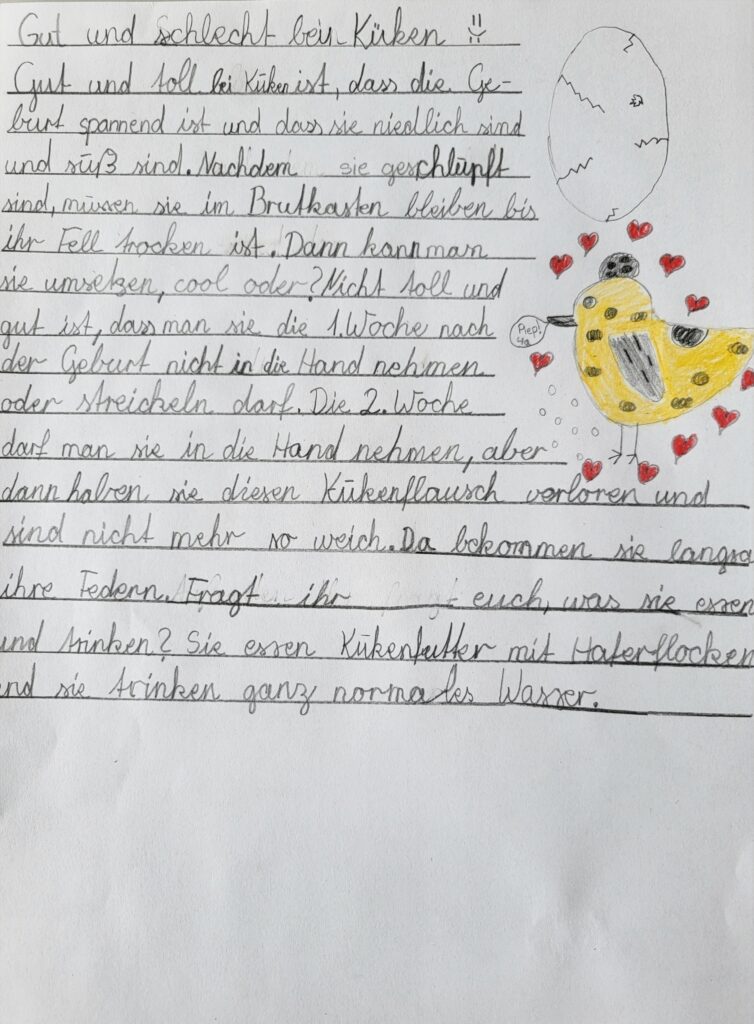 Gut und schlecht bein Küken
Gut und toll bei Küken ist, dass die Ge-
burt spannend ist und dass sie niedlich sind
und süß sind. Nachdem sie geschlüpft
sind, müssen sie im Brutkasten bleiben bis
ihr Fell trocken ist. Dann kann man
sie umsetzen, cool oder? Nicht toll und
gut ist, dass man sie die 1. Woche nach
der Geburt nicht in die Hand nehmen
oder streicheln darf. Die 2. Woche
darf man sie in die Hand nehmen, aber
dann haben sie diesen Kükenflausch verloren und
sind nicht mehr so weich. Da bekommen sie langsa
ihre Federn. Fragt ihr euch, was sie essen
und trinken? Sie essen Kükenfutter mit Haferflocken
nd sie trinken ganz normales Wasser.
Piep!
4a